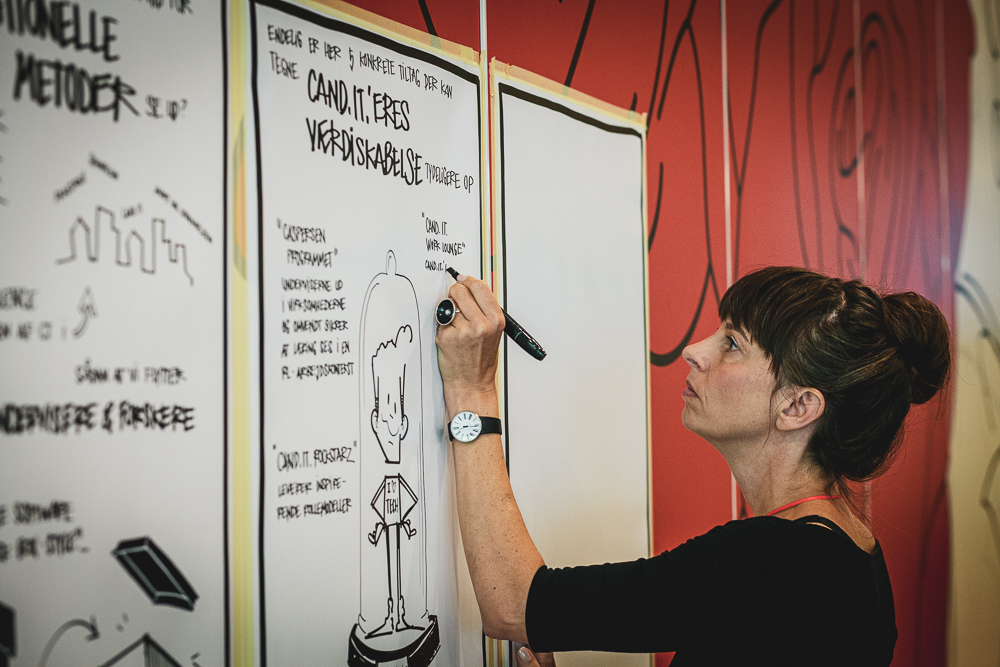 TIONELLE
METODER SE UD?
SÅDAN AT VI FLYTTER
UNDERVISERE & FORSKERE
SOFTWARE
ENDELIG ER HER 5 KONKRETE TILTAG DER KAN
TEGNE CAND.IT.'ERES
VÆRDISKABELSE TYDELIGERE OP
"CASPERSEN
PROGRAMMET"
UNDERVISERNE UD
I VIRKSOMHEDERNE
OG OMVENDT SIKRER
AT LÆRING SES I EN
FL-ARBEJDSKONTEKST
"CAND.IT. ROCKSTARZ"
LEVERER INSPIRE-
RENDE ROLLEMODELLER
"CAND.IT.
WORK LOUNGE"
CAND.IT.'
I ♡
TECH